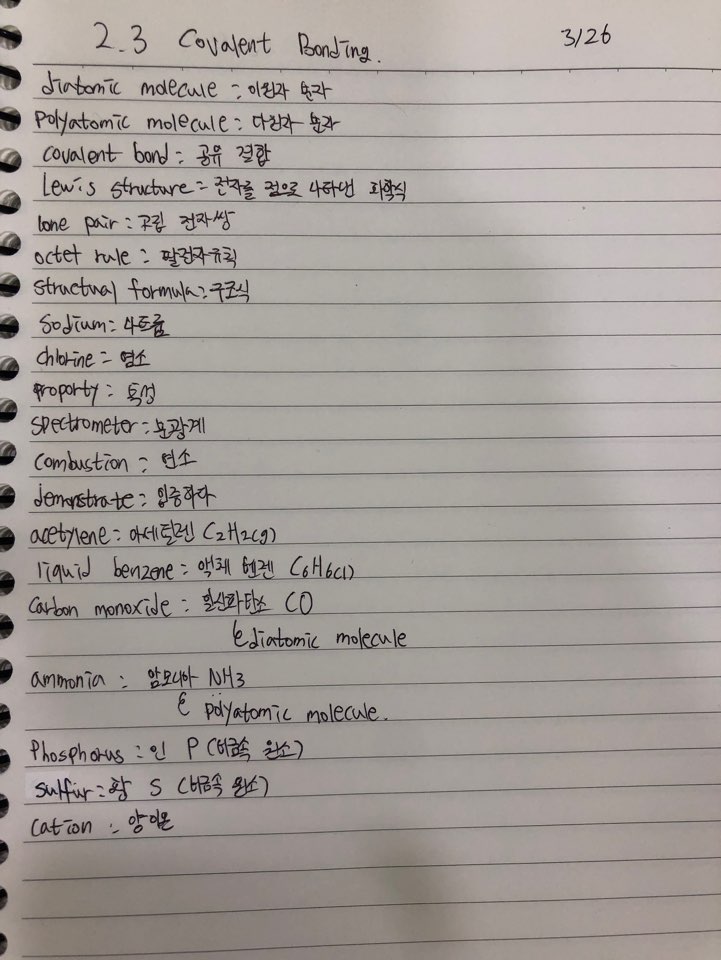 2.3 Covalent Bonding. 3/26
diatomic molecule = 이원자 분자
polyatomic molecule = 다원자 분자
covalent bond = 공유 결합
Lewis structure = 전자를 점으로 나타낸 화학식
lone pair = 고립 전자쌍
octet rule = 팔전자규칙
structual formula = 구조식
sodium = 나트륨
chlorine = 염소
proporty = 특성
spectrometer = 분광계
combustion = 연소
demonstrate = 입증하다
acetylene = 아세틸렌 C2H2(g)
liquid benzene = 액체 벤젠 C6H6(l)
carbon monoxide = 일산화탄소 CO
diatomic molecule
ammonia : 암모니아 NH3
polyatomic molecule.
phosphorus = 인 P (비금속 원소)
sulfur = 황 S (비금속 원소)
cation = 양이온